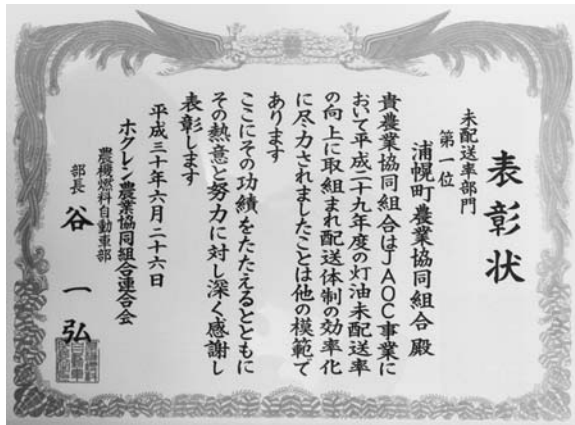 表彰状
未配送率部門
第一位
浦幌町農業協同組合 殿
貴農業協同組合はJAOC事業に
おいて平成二十九年度の灯油未配送率
の向上に取組まれ配送体制の効率化
に尽力されましたことは他の模範で
あります
ここにその功績をたたえるとともに
その熱意と努力に対し深く感謝し
表彰します
平成三十年六月二十六日
ホクレン農業協同組合連合会
農機燃料自動車部
部長 谷 一弘